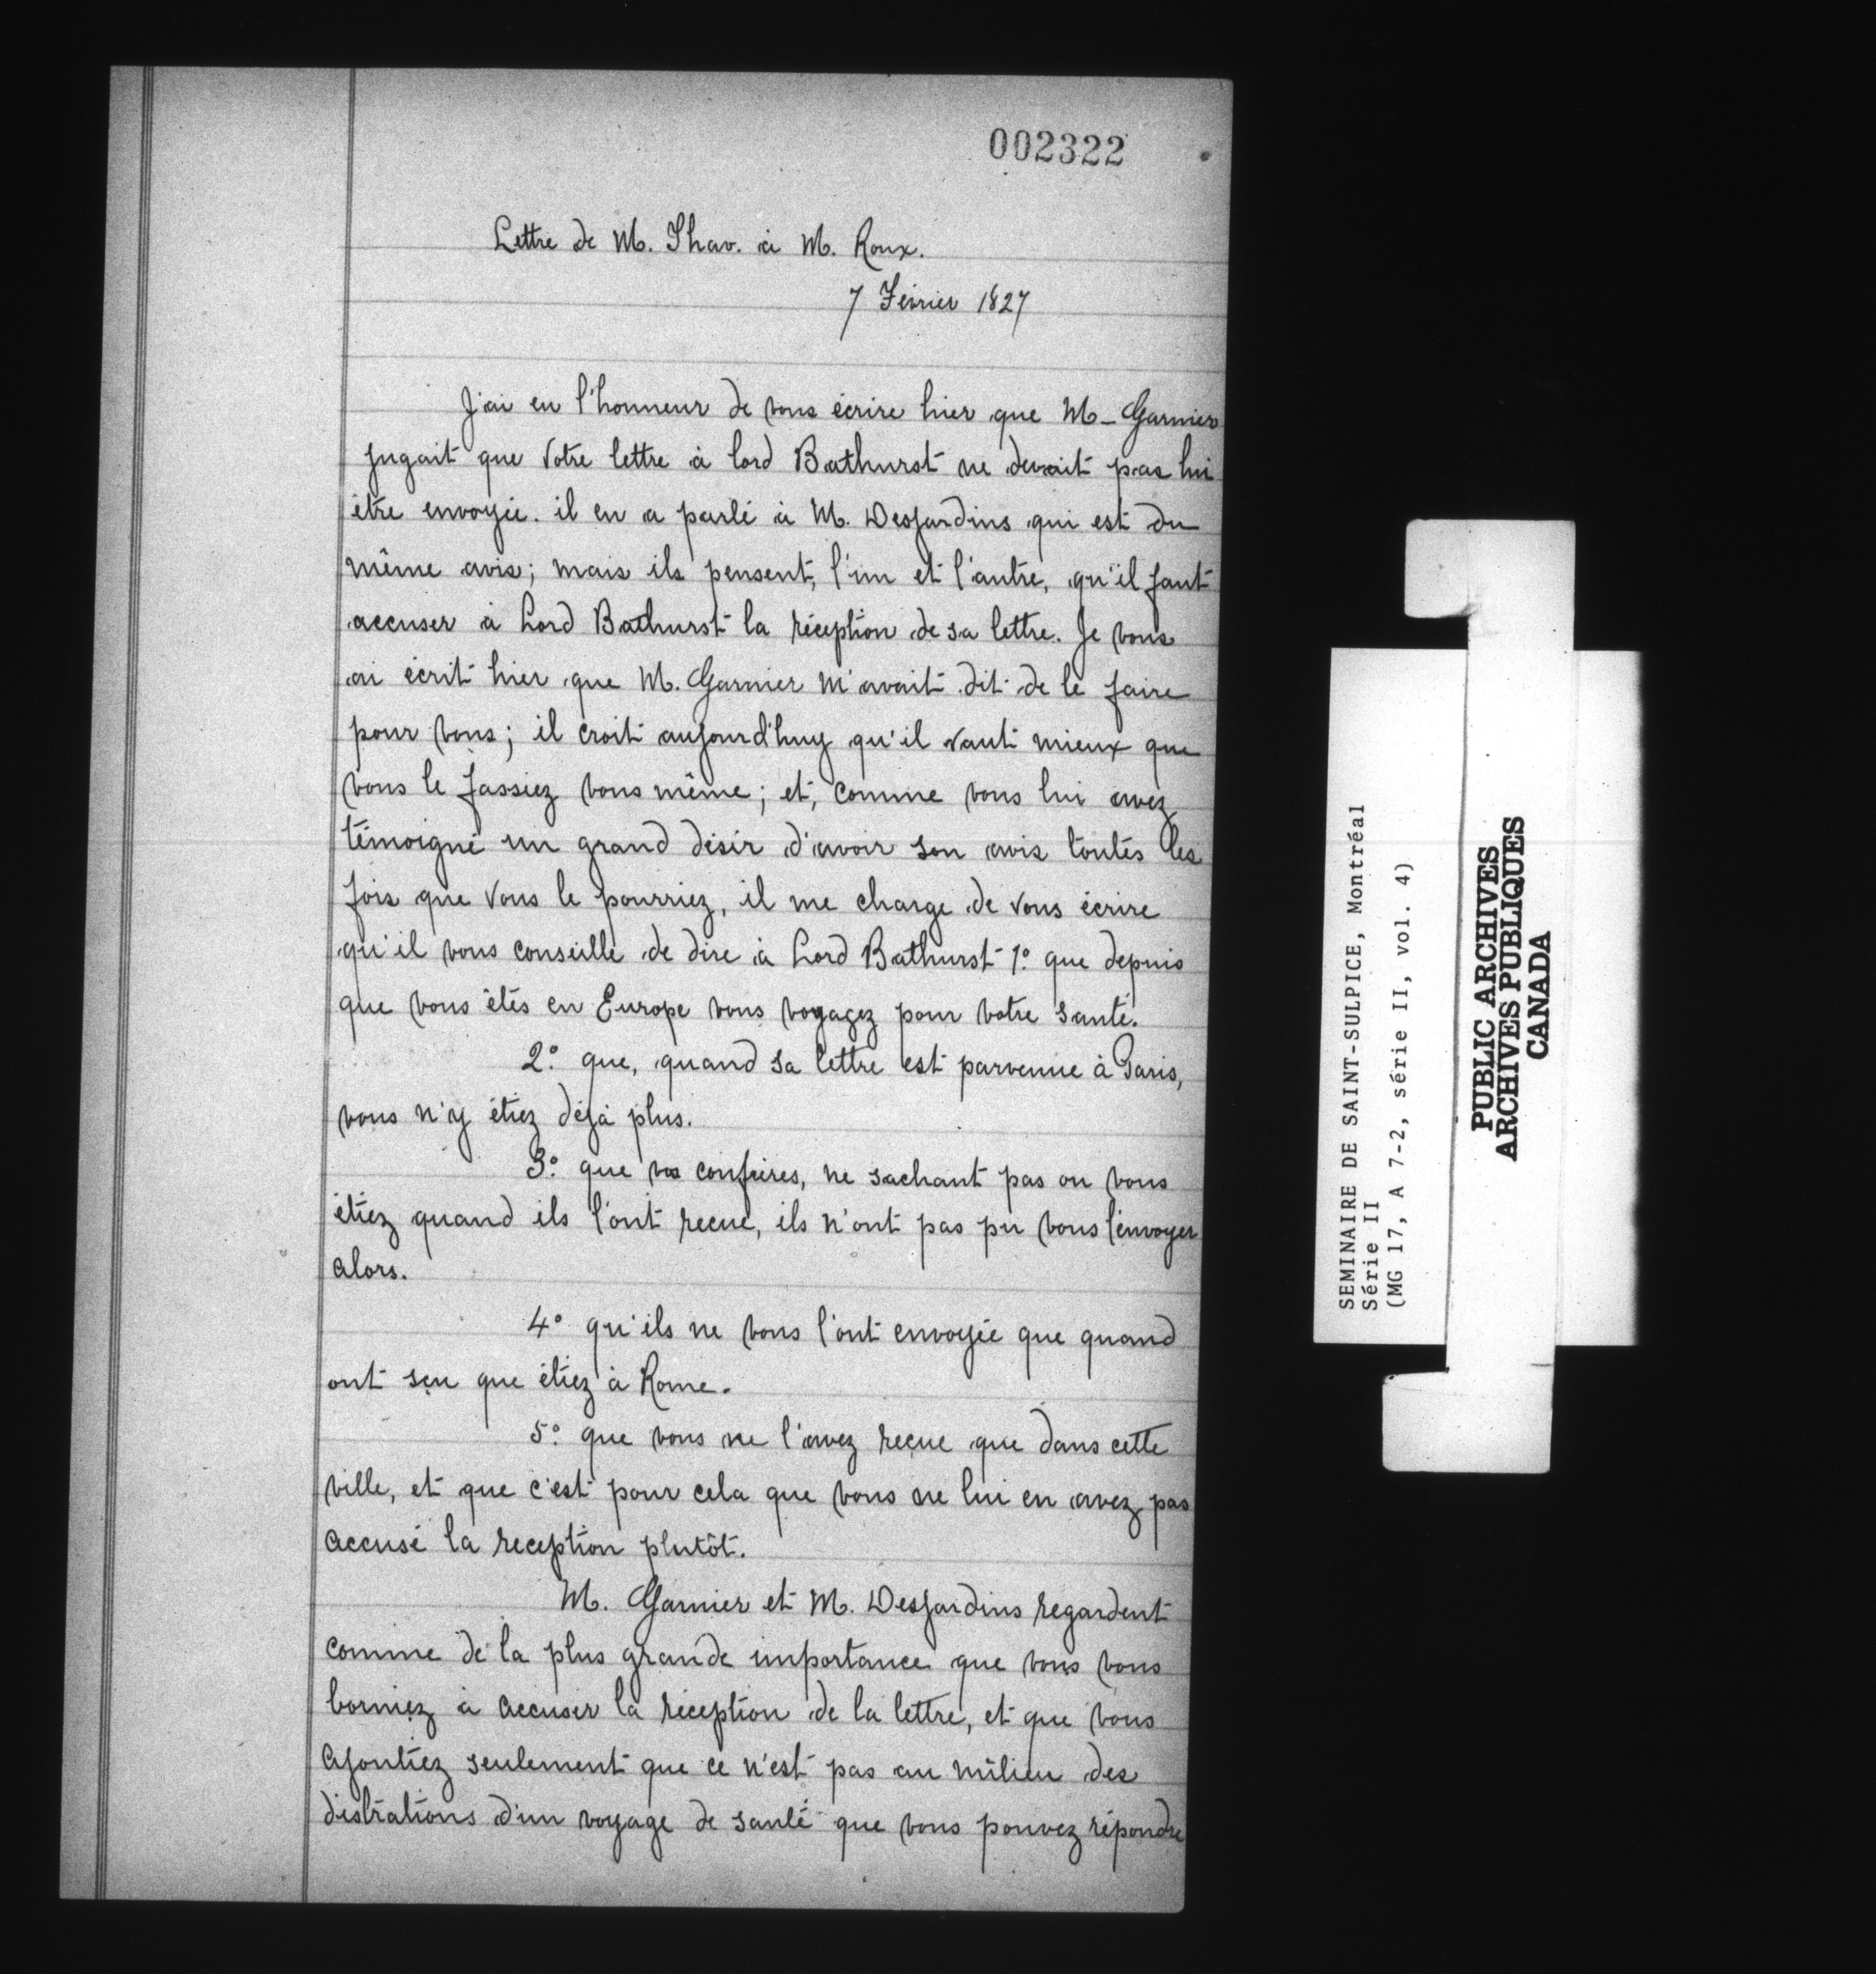 002322
Lettre de M. Thav. à M. Roux.
7 Février 1827
J'ai eu l'honneur de vous écrire hier que M- Garnier
jugait que votre lettre à lord Bathurst ne devait pas lui
être envoyée. il en a parlé à M. Desjardins qui est du
même avis; mais ils pensent, l'un et l'autre, qu'il faut
accuser à Lord Bathurst la réception de sa lettre. Je vous
ai écrit hier que M. Garnier m'avait dit de le faire
pour vous; il croit aujourd'huy qu'il vaut mieux que
vous le fassiez vous même; et, comme vous lui avez
témoigné un grand désir d'avoir son avis toutes les
fois que vous le pourriez, il me charge de vous écrire
qu'il vous conseille de dire à Lord Bathurst 1º. que depuis
que vous êtes en Europe vous voyagez pour votre santé.
2º. que, quand sa lettre est parvenue à Paris,
vous n'y étiez déjà plus.
3º. que vos confrères, ne sachant pas ou vous
étiez quand ils l'ont reçue, ils n'ont pas pu vous l'envoyer
alors.
4º qu'ils ne vous l'ont envoyée que quand
ont sçu que étiez à Rome.
5º. que vous ne l'avez reçue que dans cette
ville, et que c'est pour cela que vous ne lui en avez pas
accusé la reception plutôt.
M. Garnier et M. Desjardins regardent
comme de la plus grande importance que vous vous
borniez à accuser la réception de la lettre, et que vous
ajoutiez seulement que ce n'est pas au milieu des
distrations d'un voyage de santé que vous pouvez répondre
SEMINAIRE DE SAINT-SULPICE, Montréal
Série II
(MG 17, A 7-2, série II, vol. 4)
PUBLIC ARCHIVES
ARCHIVES PUBLIQUES
CANADA